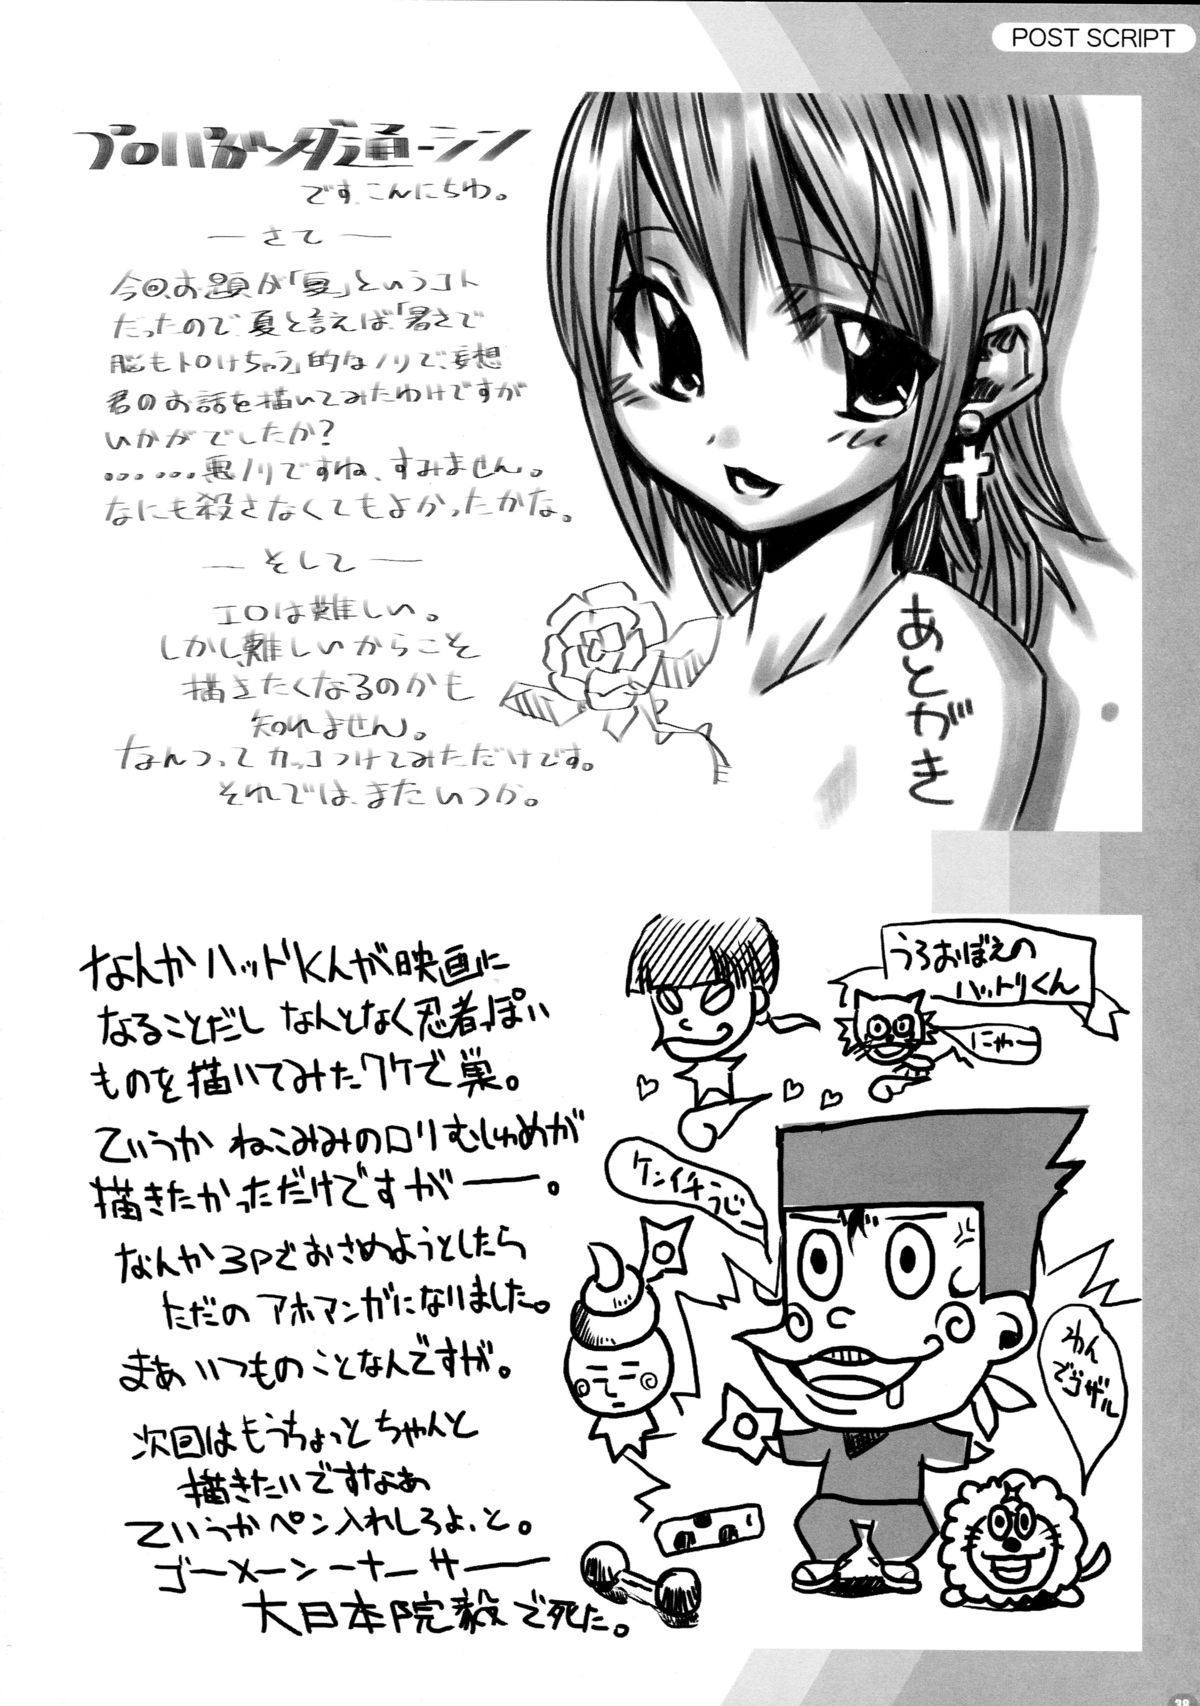 POST SCRIPT
プロパガンダ通ーシン
です、こんにちわ。
— さて —
今回、お題が「夏」というコト
だったので、夏と言えば、「暑さで
脳もトロけちゃう」的なノリで、妄想
君のお話を描いてみたわけですが
いかがでしたか?
………悪ノリですね、すみません。
なにも殺さなくてもよかったかな。
— そして —
エロは難しい。
しかし、難しいからこそ
描きたくなるのかも
知れません。
なんつってカッコつけてみただけです。
それでは、またいつか。
あとがき
なんかハッドKんが映画に
なることだし なんとなく忍者っぽい
ものを描いてみたワケで巣。
ていうか ねこみみのロリむしゅめが
描きたかっただけですがー。
なんか3Pでおさめようとしたら
ただの アホマンガになりました。
まあ いつものことなんですが。
次回はもうちょっとちゃんと
描きたいですなあ
ていうかペン入れしろよ、と。
ゴーメーンーナーサー
大日本院毅で死た。
うろおぼえの
ハットリくん
にゃー
ケンイチうじー
わん
でゴザル